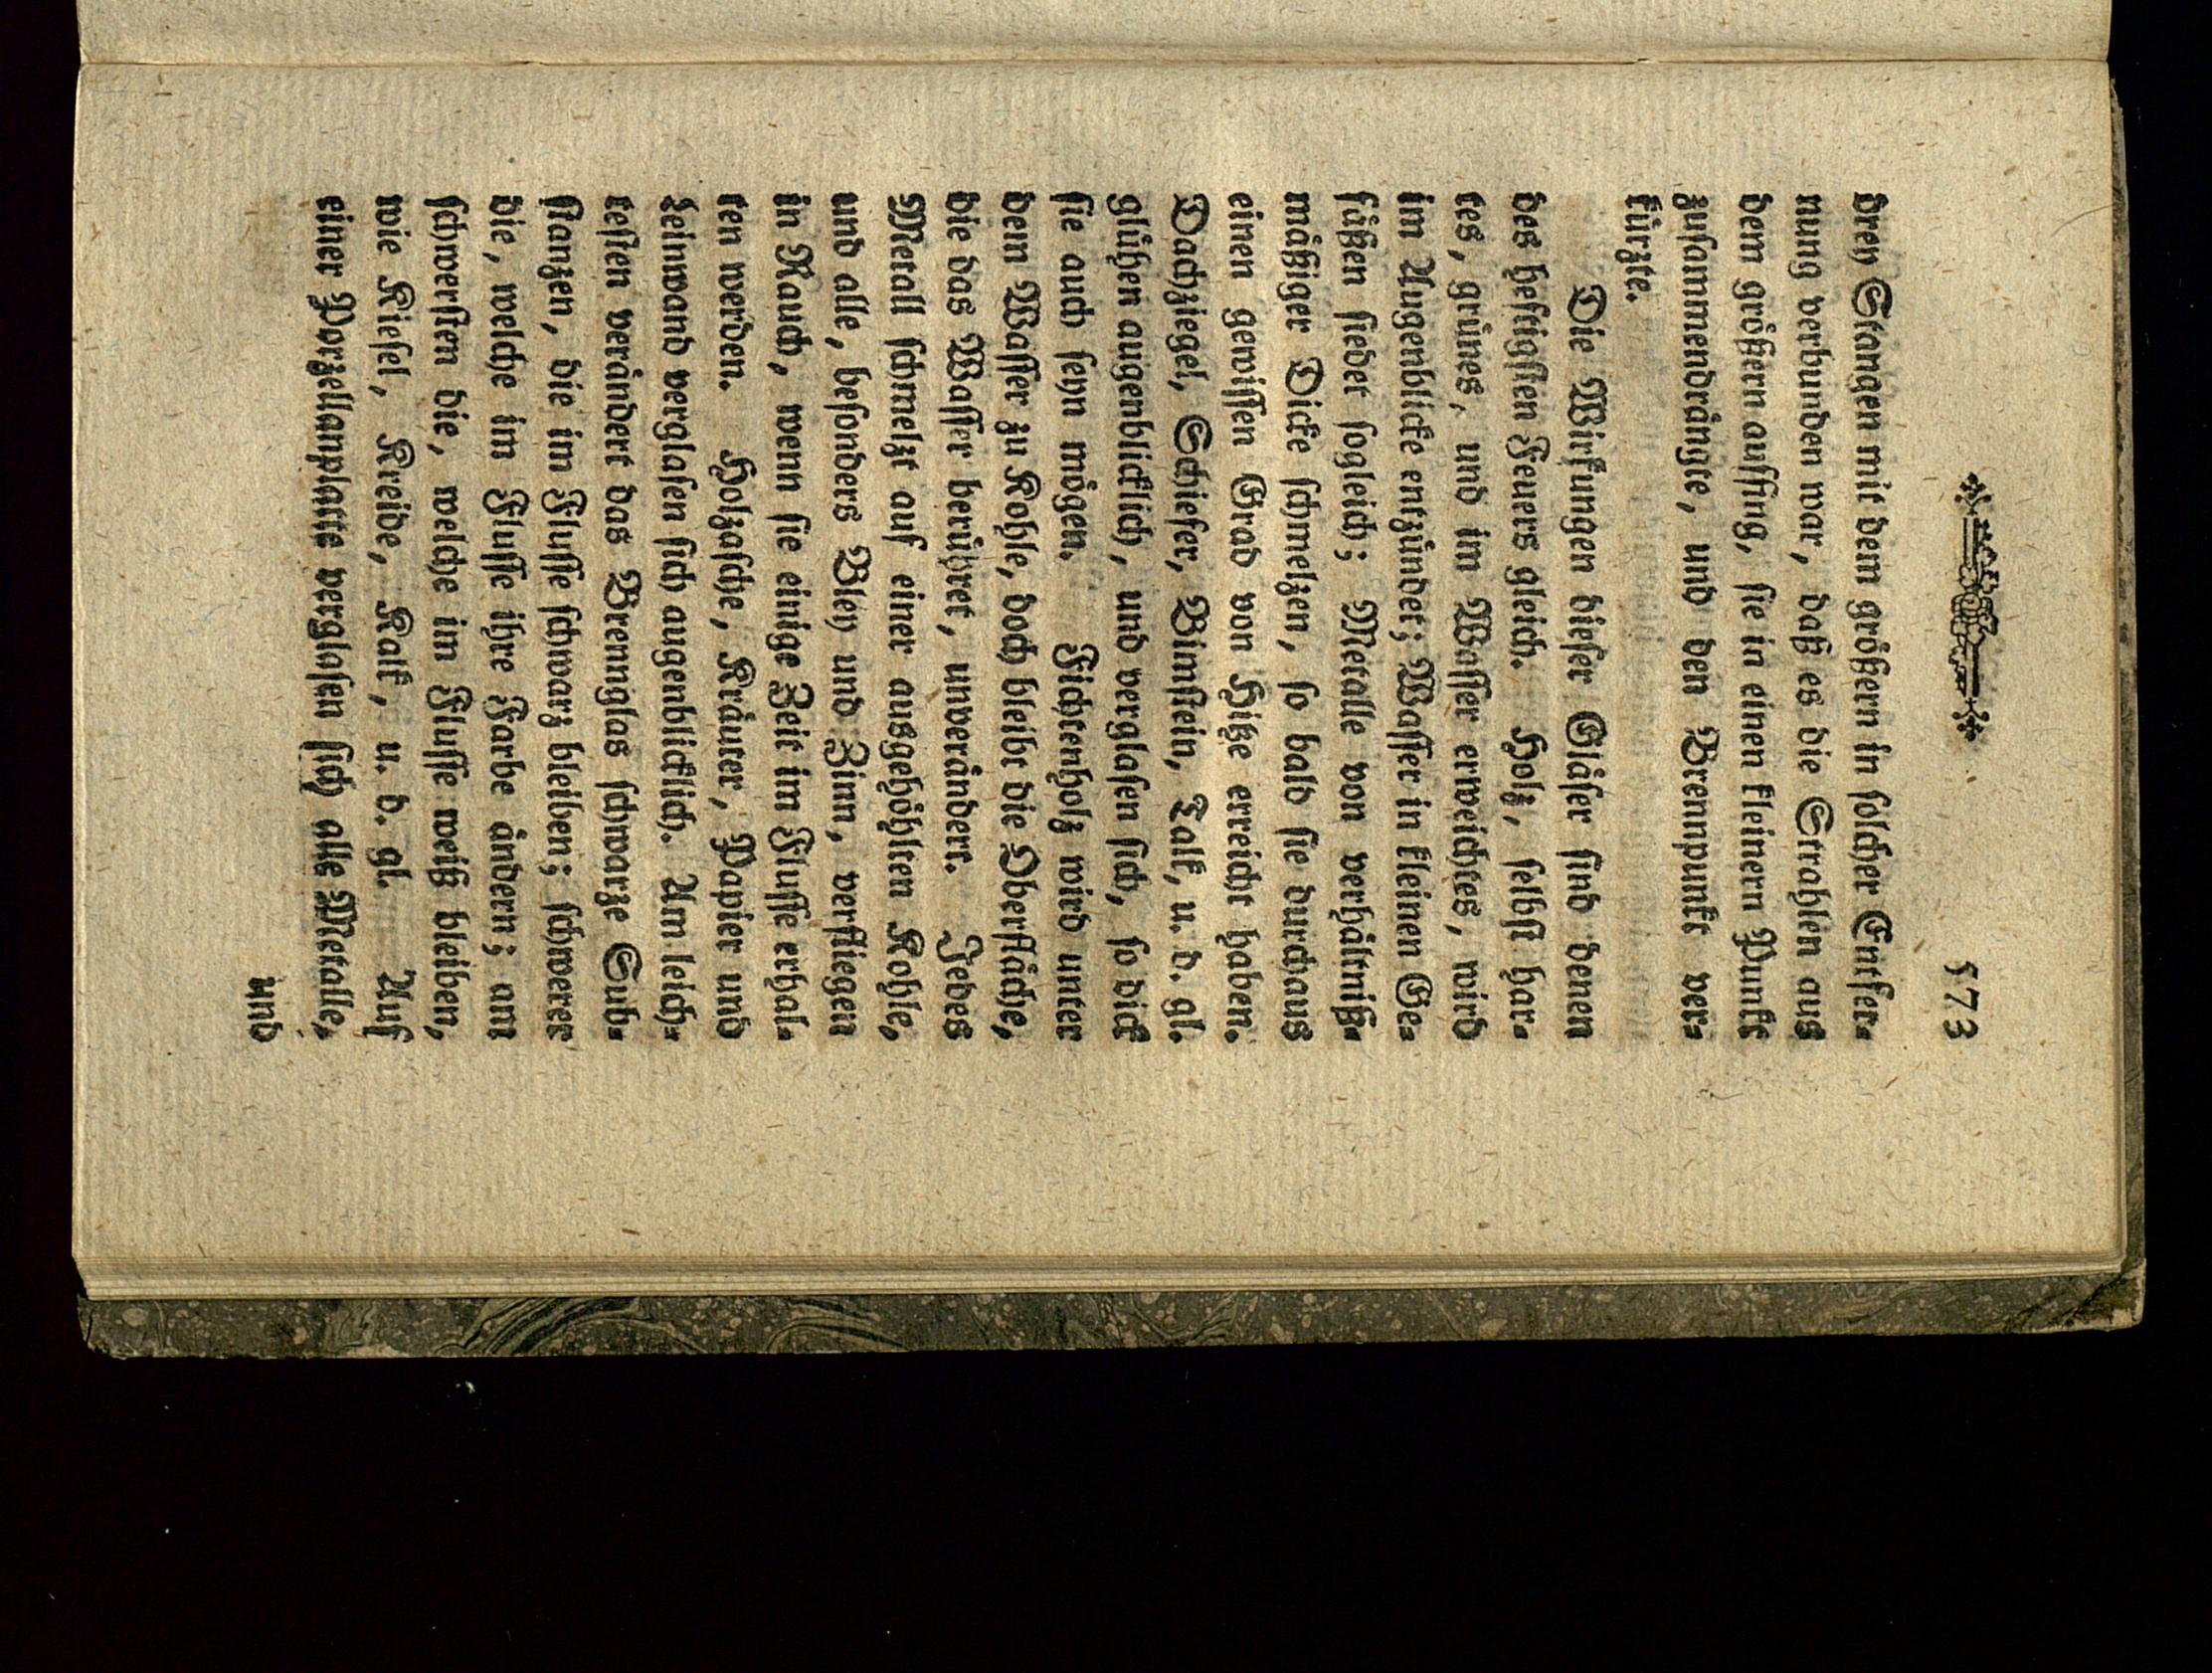 573
drey Stangen mit dem größern in solcher Entfer-
nung verbunden war, daß es die Strahlen aus
dem größern auffing, sie in einen kleinern Punkt
zusammendrängte, und den Brennpunkt ver-
kürzte.
Die Wirkungen dieser Gläser sind denen
des heftigsten Feuers gleich. Holz, selbst har-
tes, grünes, und im Wasser erweichtes, wird
im Augenblicke entzündet; Wasser in kleinen Ge-
fäßen siedet sogleich; Metalle von verhältniß-
mäßiger Dicke schmelzen, so bald sie durchaus
einen gewissen Grad von Hitze erreicht haben.
Dachziegel, Schiefer, Bimstein, Talk, u. d. gl.
glühen augenblicklich, und verglasen sich, so dick
sie auch seyn mögen. Fichtenholz wird unter
dem Wasser zu Kohle, doch bleibt die Oberfläche,
die das Wasser berühret, unverändert. Jedes
Metall schmelzt auf einer ausgehöhlten Kohle,
und alle, besonders Bley und Zinn, verfliegen
in Rauch, wenn sie einige Zeit im Flusse erhal-
ten werden. Holzasche, Kräuter, Papier und
Leinwand verglasen sich augenblicklich. Am leich-
testen verändert das Brennglas schwarze Sub-
stanzen, die im Flusse schwarz bleiben; schwerer
die, welche im Flusse ihre Farbe ändern; am
schwersten die, welche im Flusse weiß bleiben,
wie Kiesel, Kreide, Kalk, u. d. gl. Auf
einer Porzellanplatte verglasen sich alle Metalle,
und